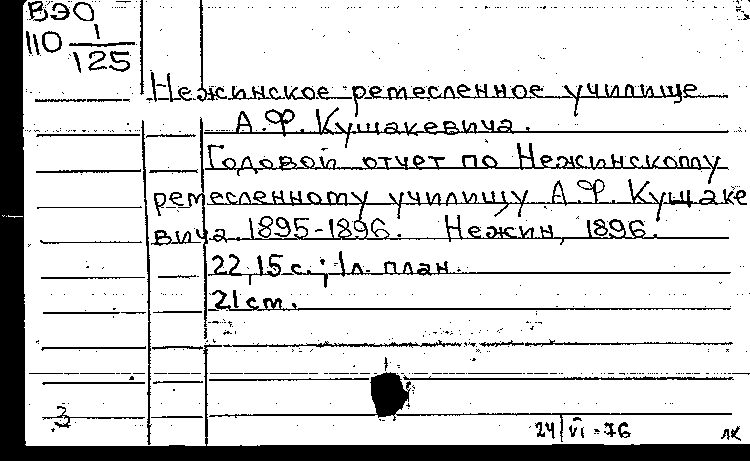 ВЭО
110 1/125
Нежинское ремесленное училище
А.Ф. Кушакевича.
Годовой отчет по Нежинскому
ремесленному училищу А.Ф. Кушаке
вича. 1895-1896. Нежин, 1896.
22, 15 с.; 1 л. план.
21 cm.
3
24/VI-76 лк